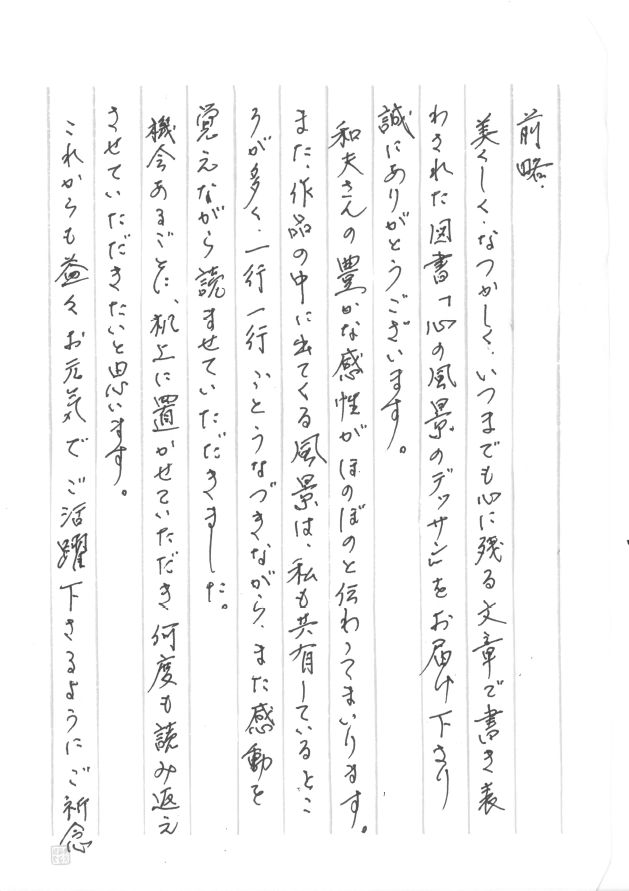 前略、
美くしく、なつかしく、いつまでも心に残る文章で書き表
わされた図書「心の風景のデッサン」をお届け下さり
誠にありがとうございます。
和夫さんの豊かな感性がほのぼのと伝わってまいります。
また、作品の中に出てくる風景は、私も共有しているとこ
ろが多く、一行一行ふとうなづきながら、また感動を
覚えながら読ませていただきました。
機会あるごとに、机上に置かせていただき何度も読み返え
させていただきたいと思います。
これからも益々お元気でご活躍下さるようにご祈念